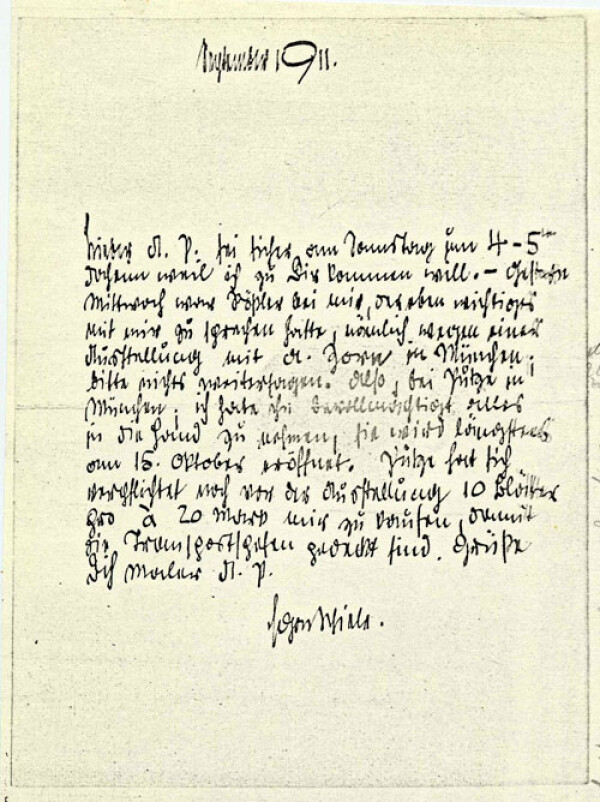 September 1911.
Lieber A. P. sei sicher am Samstag um 4–5h
daheim weil ich zu Dir kommen will. – Gestern
Mittwoch war Rößler bei mir, der eben wichtiges
mit mir zu sprechen hatte, nämlich wegen einer
Ausstellung mit A. Horn in München.
bitte nichts weitersagen. Also, bei Pütze in
München. ich habe ihn bevollmächtigt alles
in die Hand zu nehmen, sie wird längstens
am 15. Oktober eröffnet. Pütze hat sich
verpflichtet noch vor der Ausstellung 10 Blätter
pro à 20 Mark mir zu kaufen, damit
die Transportspesen gedeckt sind. Grüße
Dich Maler A. P.
Egon Schiele.